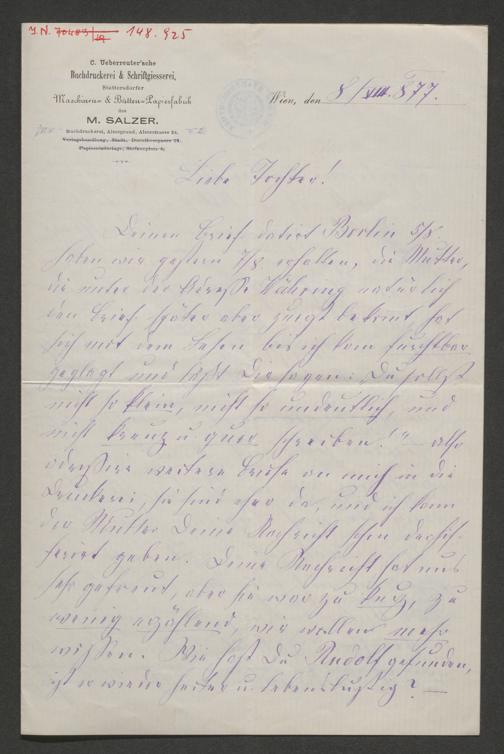 J.N. 70483/19 148.925
C. Ueberreuter'sche
Buchdruckerei & Schriftgiesserei,
Stattersdorfer
Maschinen- & Bütten-Papierfabrik
des
M. SALZER.
Buchdruckerei, Alsergrund, Alserstrasse 24.
Verlagshandlung, Stadt, Dorotheergasse
Papierniederlage,
Wien, den 8/VIII. 877.
Liebe Tochter!
Deinen Brief datirt Berlin 5/8
haben wir gestern 7/8 erhalten, die Mutter,
die unter der Adresse Währing natürlich
den Brief später aber zuerst bekömt, hat
sich mit dem Lesen bis ich kam furchtbar
geplagt und läßt Dir sagen: Du sollst
nicht so klein, nicht so undeutlich, und
nicht kreuz u quer schreiben!" – also
adressire weitere Briefe an mich in die
Druckerei, sie sind eher da, und ich kann
der Mutter Deine Nachricht schon dechif-
ferirt geben. Deine Nachricht hat uns
sehr gefreut, aber sie war zu kurz, zu
wenig erzählend, wir wollen mehr
wissen. Wie hast Du Rudolf gefunden,
ist er wieder heiter u. lebenslustig? –